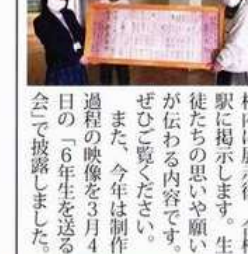 駅に掲示します。生
徒たちの思いや願い
が伝わる内容です。
ぜひご覧ください。
また、今年は制作
過程の映像を3月4
日の「6年生を送る
会」で披露しました。